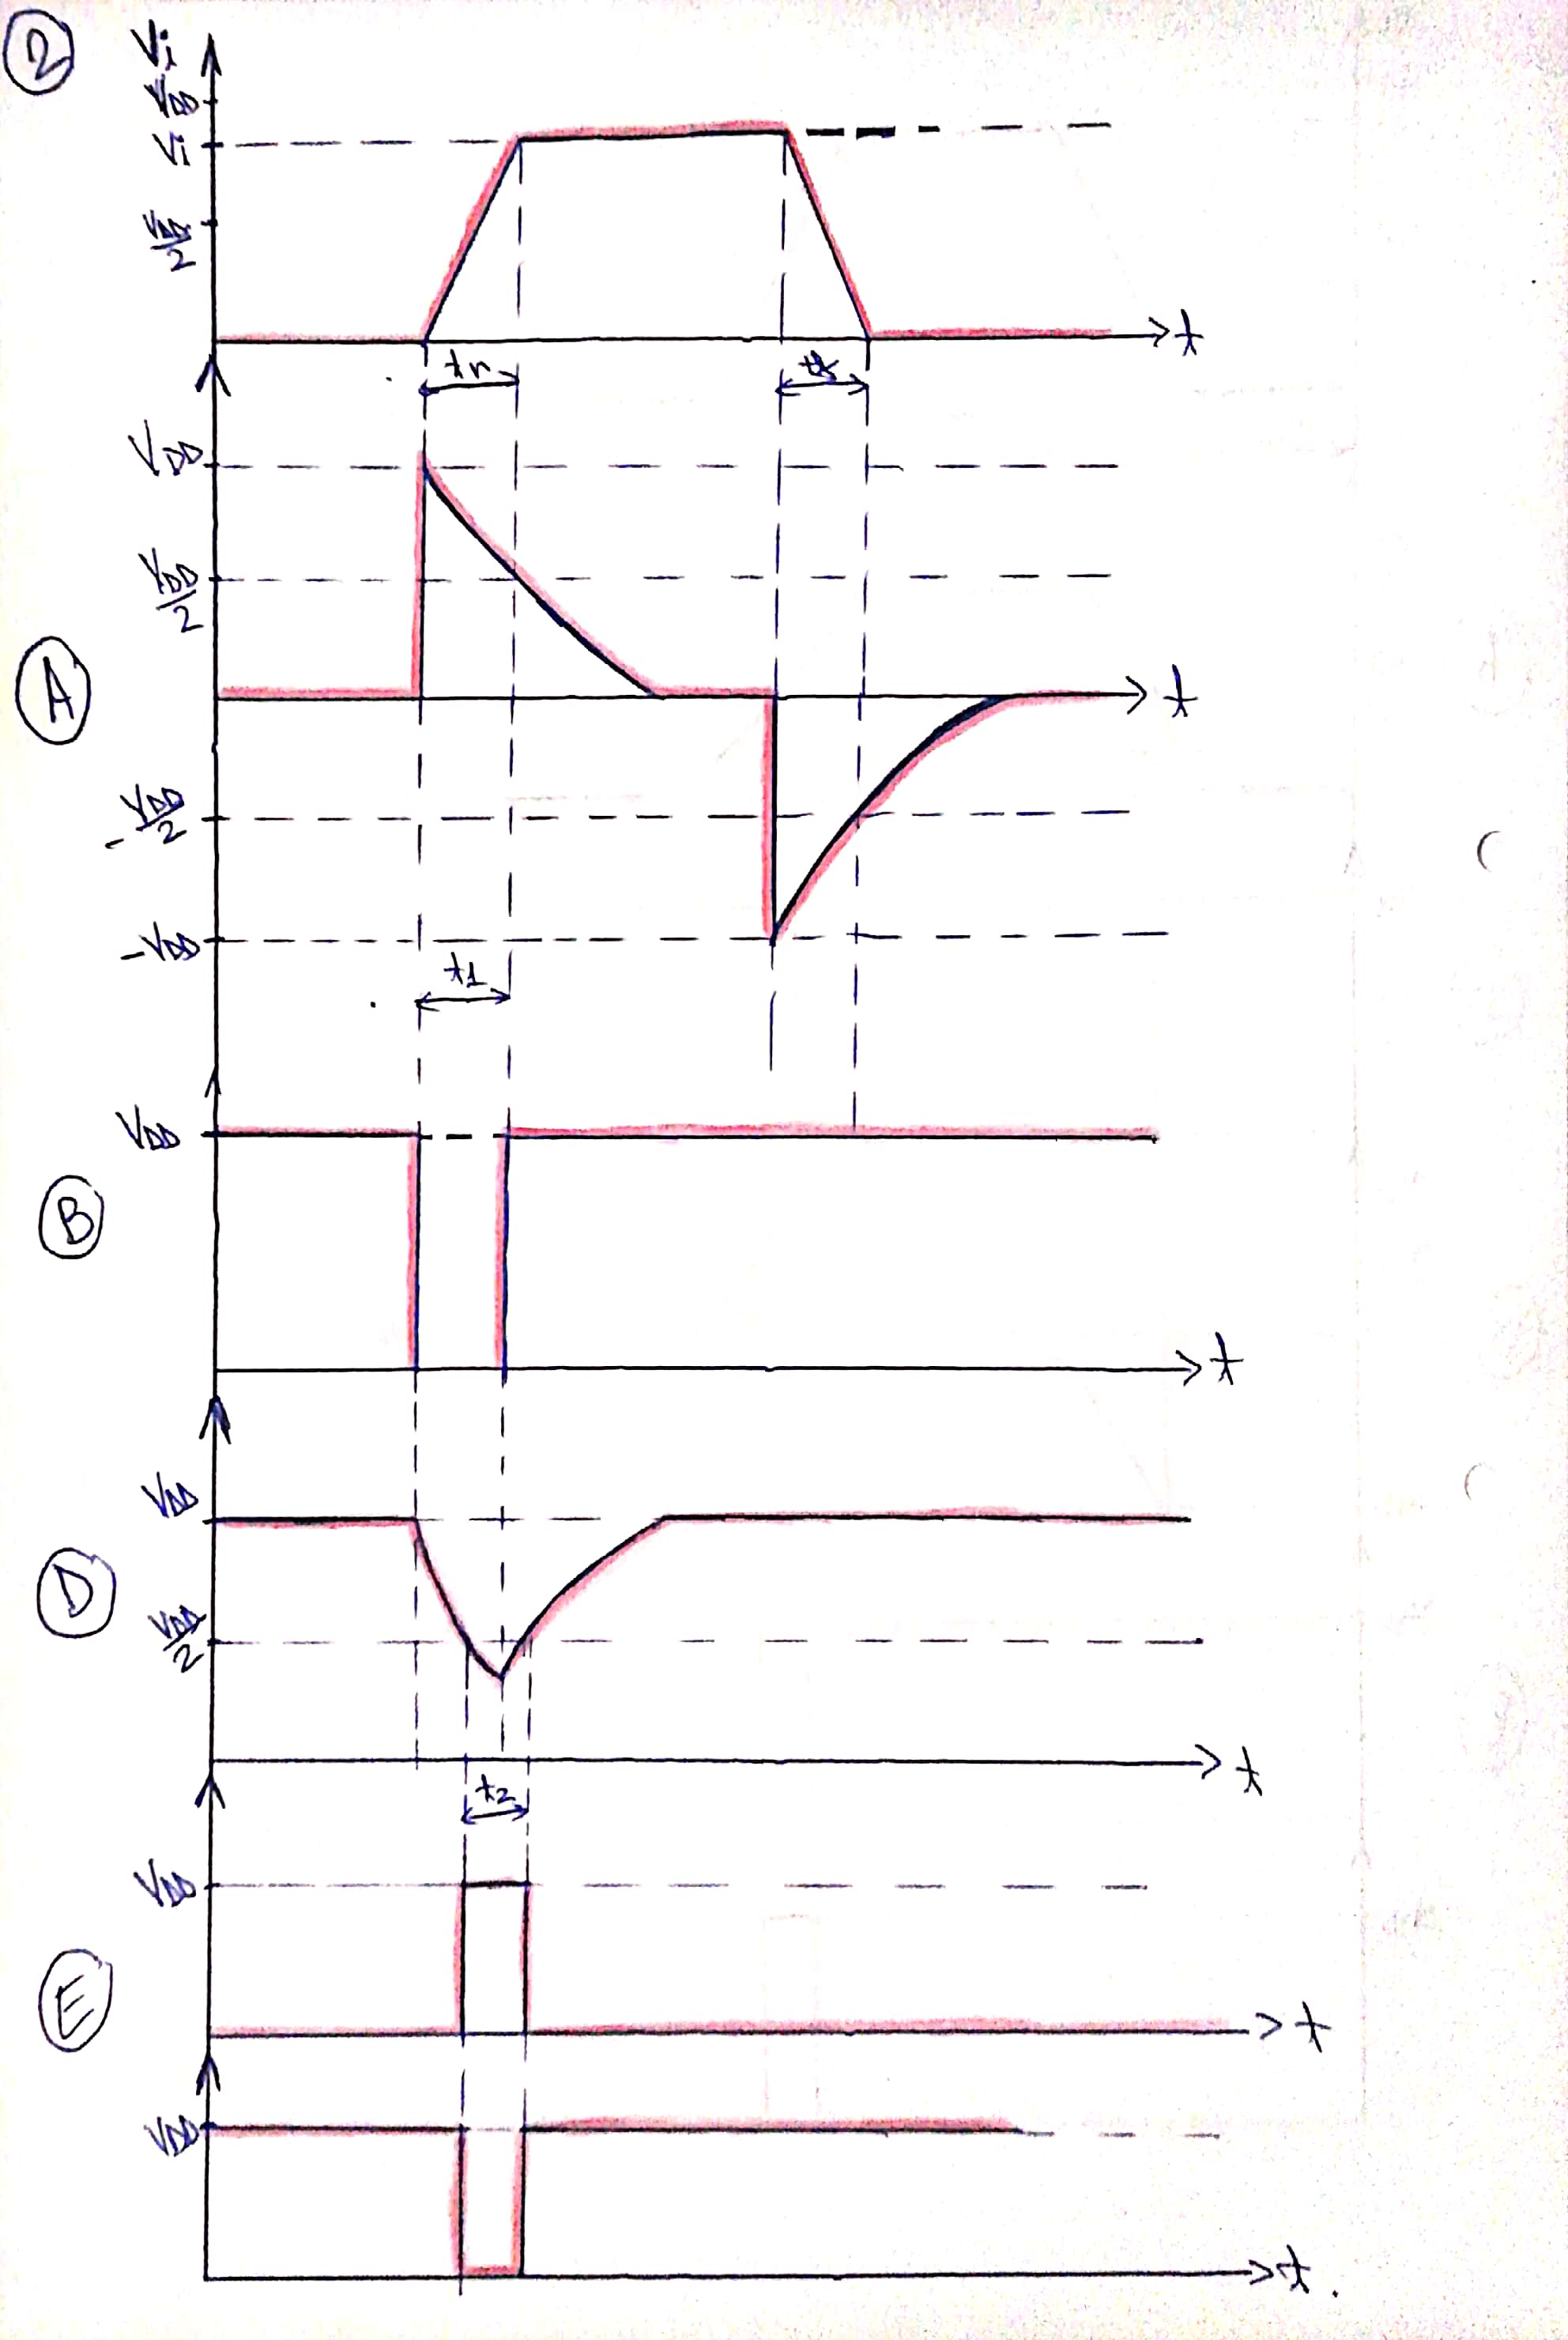 2
Vi
VDD
Vi
VDD/2
t
tr
VDD
VDD/2
A
t
-VDD/2
-VDD
t1
VDD
B
t
VDD
D
VDD/2
t
t2
VDD
E
t
VDD
t.